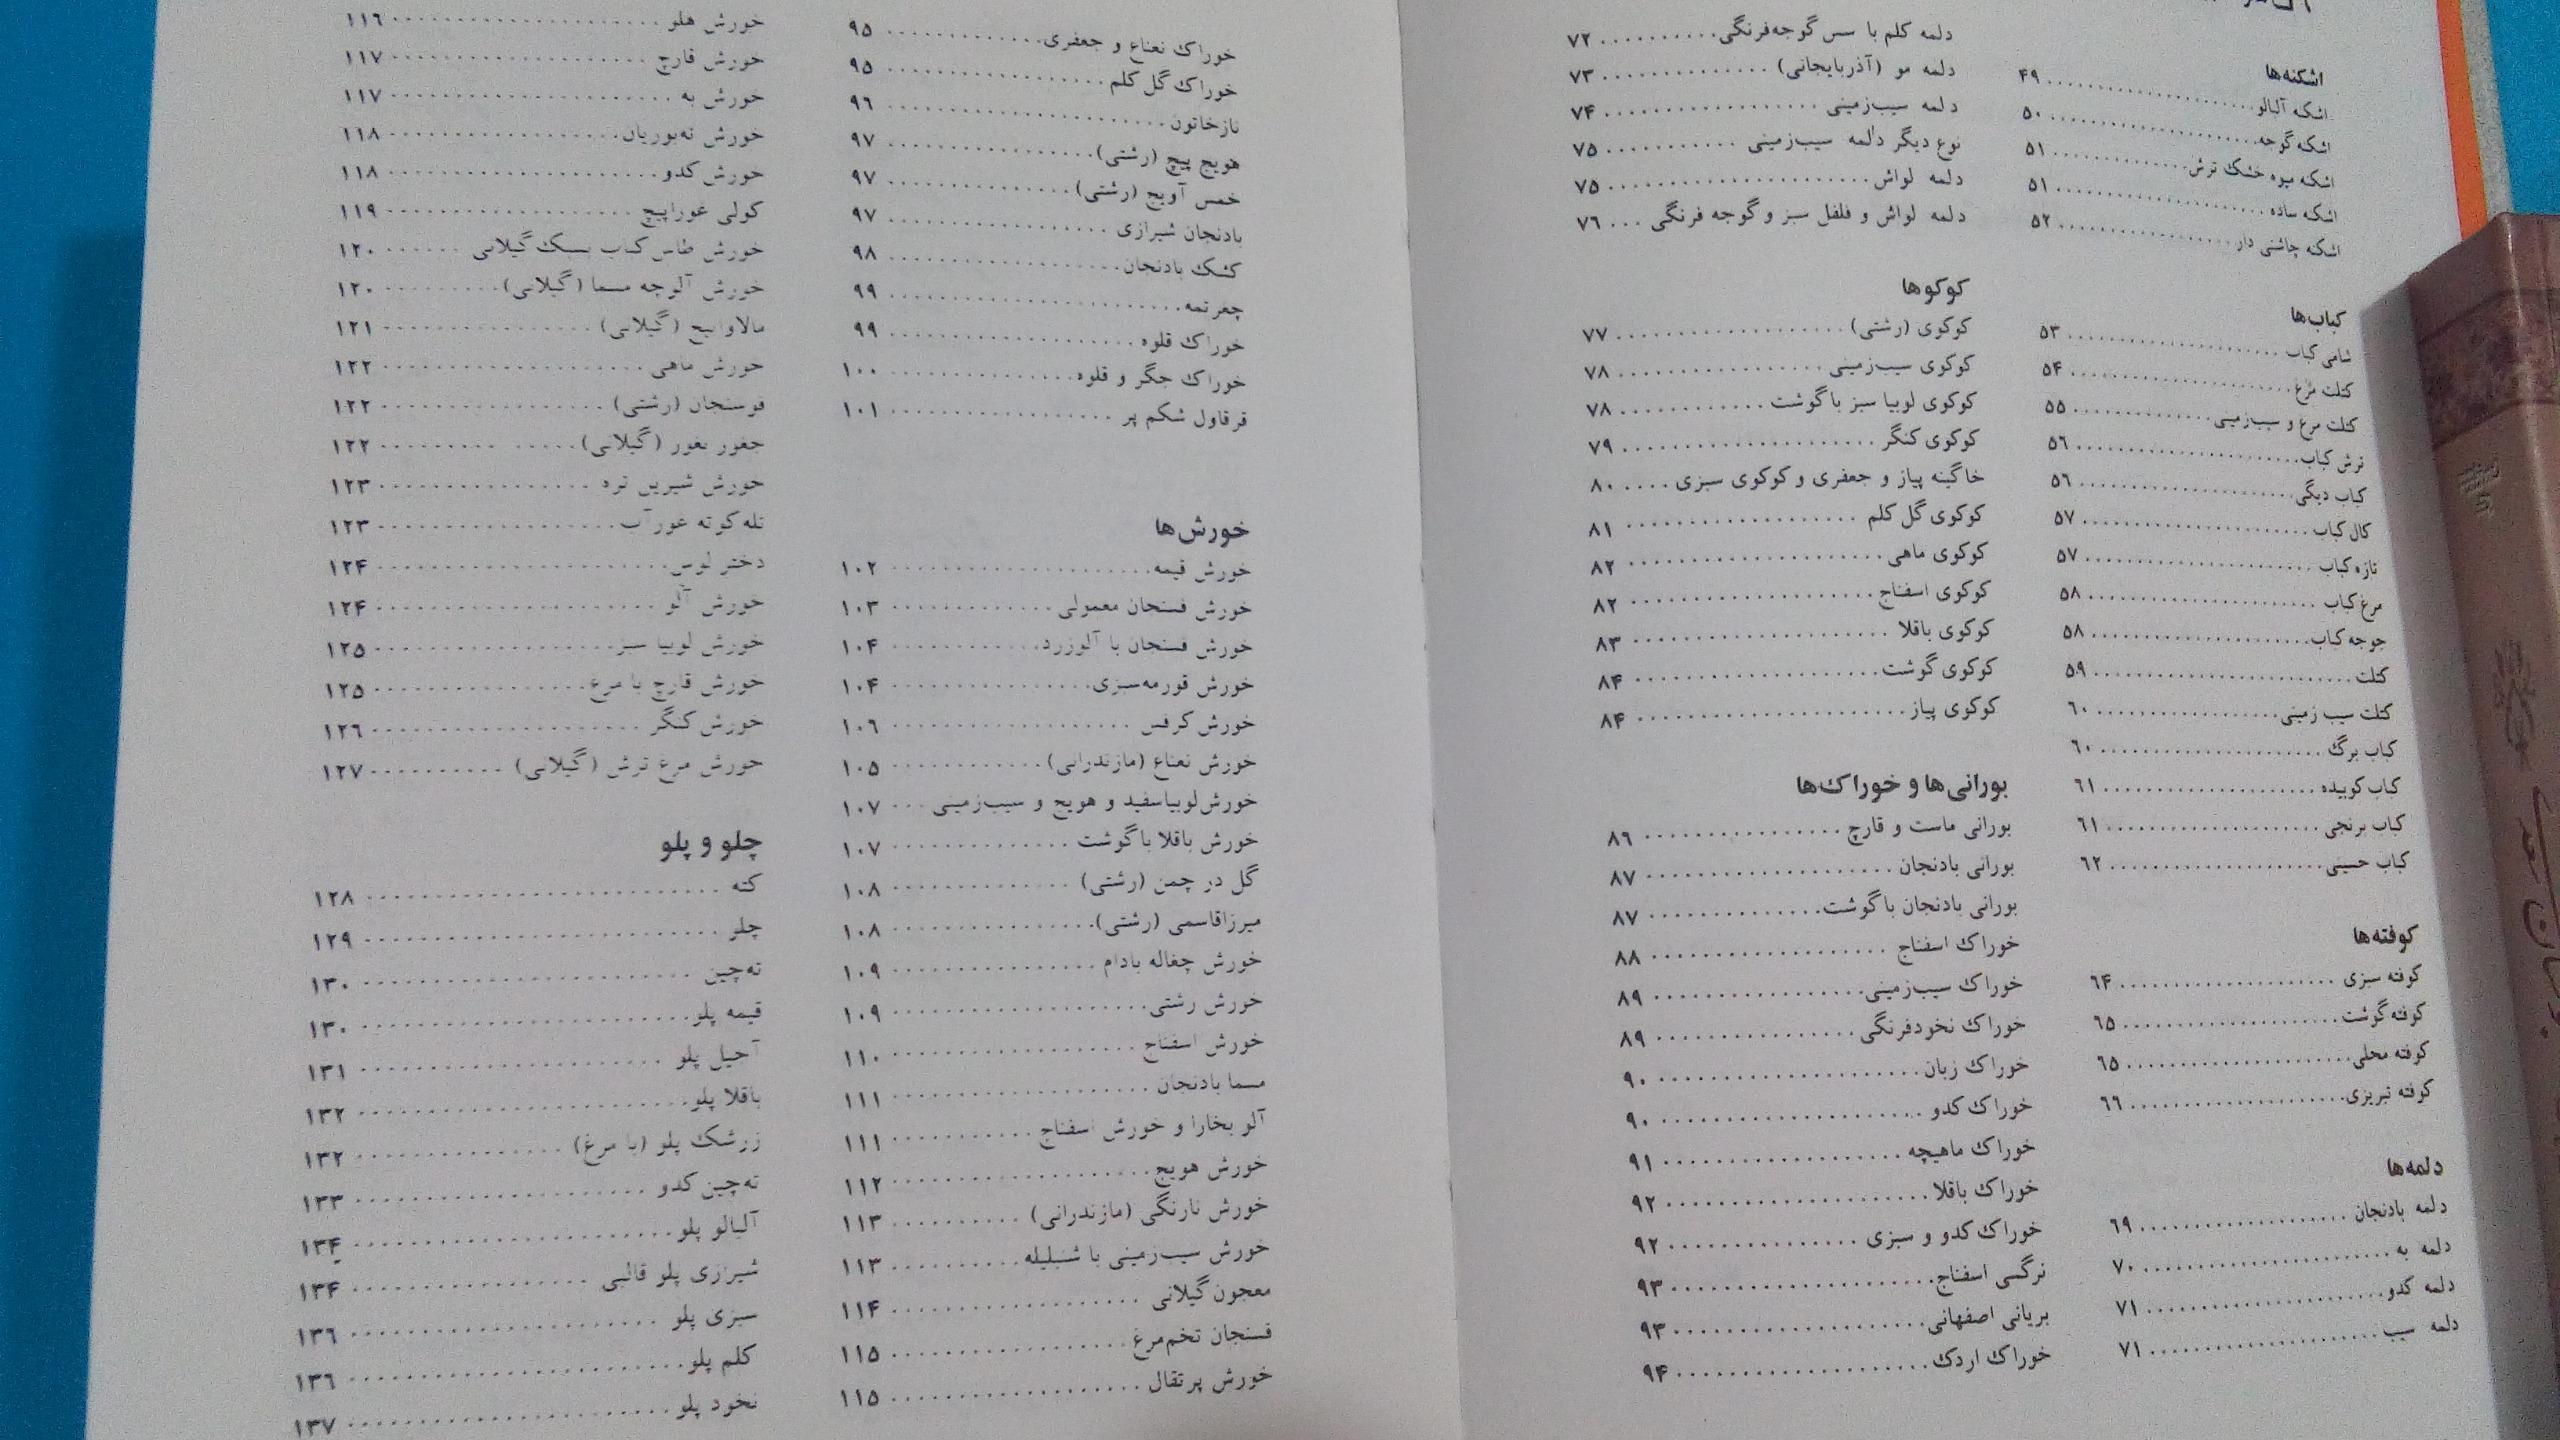 اشکنه‌ها
اشکنه آلبالو ۴۹
اشکنه گوجه ۵۰
اشکنه میوه خشک ترش ۵۱
اشکنه ساده ۵۱
اشکنه چاشنی دار ۵۲
کباب‌ها
شامی کباب ۵۳
کتلت مرغ ۵۴
کتلت مرغ و سیب‌زمینی ۵۵
ترش کباب ۵۶
کباب دیگی ۵۶
کال کباب ۵۷
تازه کباب ۵۷
مرغ کباب ۵۸
جوجه کباب ۵۸
کتلت ۵۹
کتلت سیب زمینی ۶۰
کباب برگ ۶۰
کباب کوبیده ۶۱
کباب برنجی ۶۱
کباب حسینی ۶۲
کوفته‌ها
کوفته سبزی ۶۴
کوفته گوشت ۶۵
کوفته محلی ۶۵
کوفته تبریزی ۶۶
دلمه‌ها
دلمه بادنجان ۶۹
دلمه به ۷۰
دلمه کدو ۷۱
دلمه سیب ۷۱
دلمه کلم با سس گوجه‌فرنگی ۷۲
دلمه مو (آذربایجانی) ۷۳
دلمه سیب‌زمینی ۷۴
نوع دیگر دلمه سیب‌زمینی ۷۵
دلمه لواش ۷۵
دلمه لواش و فلفل سبز و گوجه فرنگی ۷۶
کوکوها
کوکوی (رشتی) ۷۷
کوکوی سیب‌زمینی ۷۸
کوکوی لوبیا سبز با گوشت ۷۸
کوکوی کنگر ۷۹
خاگینه پیاز و جعفری و کوکوی سبزی ۸۰
کوکوی گل کلم ۸۱
کوکوی ماهی ۸۲
کوکوی اسفناج ۸۲
کوکوی باقلا ۸۳
کوکوی گوشت ۸۴
کوکوی پیاز ۸۴
بورانی‌ها و خوراک‌ها
بورانی ماست و قارچ ۸۶
بورانی بادنجان ۸۷
بورانی بادنجان با گوشت ۸۷
خوراک اسفناج ۸۸
خوراک سیب‌زمینی ۸۹
خوراک نخودفرنگی ۸۹
خوراک زبان ۹۰
خوراک کدو ۹۰
خوراک ماهیچه ۹۱
خوراک باقلا ۹۲
خوراک کدو و سبزی ۹۲
نرگسی اسفناج ۹۳
بریانی اصفهانی ۹۳
خوراک اردک ۹۴
خوراک نعناع و جعفری ۹۵
خوراک گل کلم ۹۵
نازخاتون ۹۶
هویج پیچ (رشتی) ۹۷
خمس آویج (رشتی) ۹۷
بادنجان شیرازی ۹۷
کشک بادنجان ۹۸
چغرتمه ۹۹
خوراک قلوه ۹۹
خوراک جگر و قلوه ۱۰۰
قرقاول شکم پر ۱۰۱
خورش‌ها
خورش قیمه ۱۰۲
خورش فسنجان معمولی ۱۰۳
خورش فسنجان با آلوزرد ۱۰۴
خورش قورمه‌سبزی ۱۰۴
خورش کرفس ۱۰۶
خورش نعناع (مازندرانی) ۱۰۵
خورش لوبیاسفید و هویج و سیب‌زمینی ۱۰۷
خورش باقلا با گوشت ۱۰۷
گل در چمن (رشتی) ۱۰۸
میرزاقاسمی (رشتی) ۱۰۸
خورش چغاله بادام ۱۰۹
خورش رشتی ۱۰۹
خورش اسفناج ۱۱۰
مسما بادنجان ۱۱۱
آلو بخارا و خورش اسفناج ۱۱۱
خورش هویج ۱۱۲
خورش نارنگی (مازندرانی) ۱۱۳
خورش سیب‌زمینی با شنبلیله ۱۱۳
معجون گیلانی ۱۱۴
فسنجان تخم‌مرغ ۱۱۵
خورش پرتقال ۱۱۵
خورش هلو ۱۱۶
خورش قارچ ۱۱۷
خورش به ۱۱۷
خورش ته‌بوریان ۱۱۸
خورش کدو ۱۱۸
کولی غوراپیچ ۱۱۹
خورش طاس کباب بسبک گیلانی ۱۲۰
خورش آلوچه مسما (گیلانی) ۱۲۰
مالاوابیج (گیلانی) ۱۲۱
خورش ماهی ۱۲۲
فوسنجان (رشتی) ۱۲۲
جغور بغور (گیلانی) ۱۲۲
خورش شیرین تره ۱۲۳
تله کوته غورآب ۱۲۳
دختر لوس ۱۲۴
خورش آلو ۱۲۴
خورش لوبیا سبز ۱۲۵
خورش قارچ با مرغ ۱۲۵
خورش کنگر ۱۲۶
خورش مرغ ترش (گیلانی) ۱۲۷
چلو و پلو
کته ۱۲۸
چلو ۱۲۹
ته‌چین ۱۳۰
قیمه پلو ۱۳۰
آجیل پلو ۱۳۱
باقلا پلو ۱۳۲
زرشک پلو (با مرغ) ۱۳۲
ته‌چین کدو ۱۳۳
آلبالو پلو ۱۳۴
شیرازی پلو قالبی ۱۳۴
سبزی پلو ۱۳۶
کلم پلو ۱۳۶
نخود پلو ۱۳۷